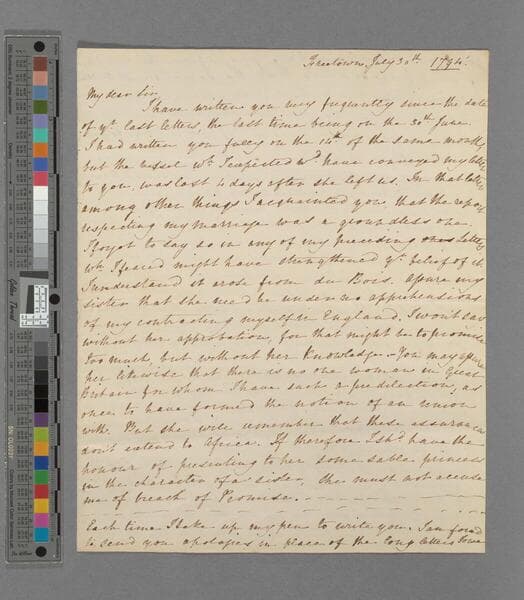 Freetown, July 30th 1794.
My dear Sir
I have written you very frequently since the date
of yr. last letters, the last time being on the 30th June.
I had written you fully on the 14th of the same month,
but the vessel wh. I expected wd. have conveyed my letter
to you, was lost 4 days after she left us. In that letter
among other things I acquainted you, that the report
respecting my marriage was a groundless one.
I forgot to say so in any of my preceding ones letters
wh. I feared might have strengthened yr. belief of it.
I understand it arose from du Bois. Assure my
sister that she need be under no apprehensions
of my contracting myself in England, I wont say
without her approbation, for that might be to promise
too much, but without her Knowledge. - You may assure
her likewise that there is no one woman in Great
Britain for whom I have such a predilection, as
once to have formed the notion of an union
with. But she will remember that these assurances
don't extend to Africa. If therefore I shd. have the
honour of presenting to her some sable princess
in the character of a sister, she must not accuse
me of breach of Promise.
Each time I take up my pen to write you, I am forced
to send you apologies in place of the long letters I owe